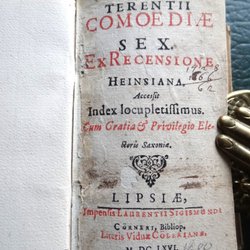 TERENTII
COMOEDIÆ
SEX.
Ex RECENSIONE
HEINSIANA.
Accessit
Index locupletissimus.
Cum Gratia & Privilegio Ele-
ctoris Saxoniæ.
LIPSIÆ,
Impensis LAURENTII SIGISMUNDI
CÖRNERI, Bibliop.
Literis Viduæ COLERIANÆ,
M DC LXVI.